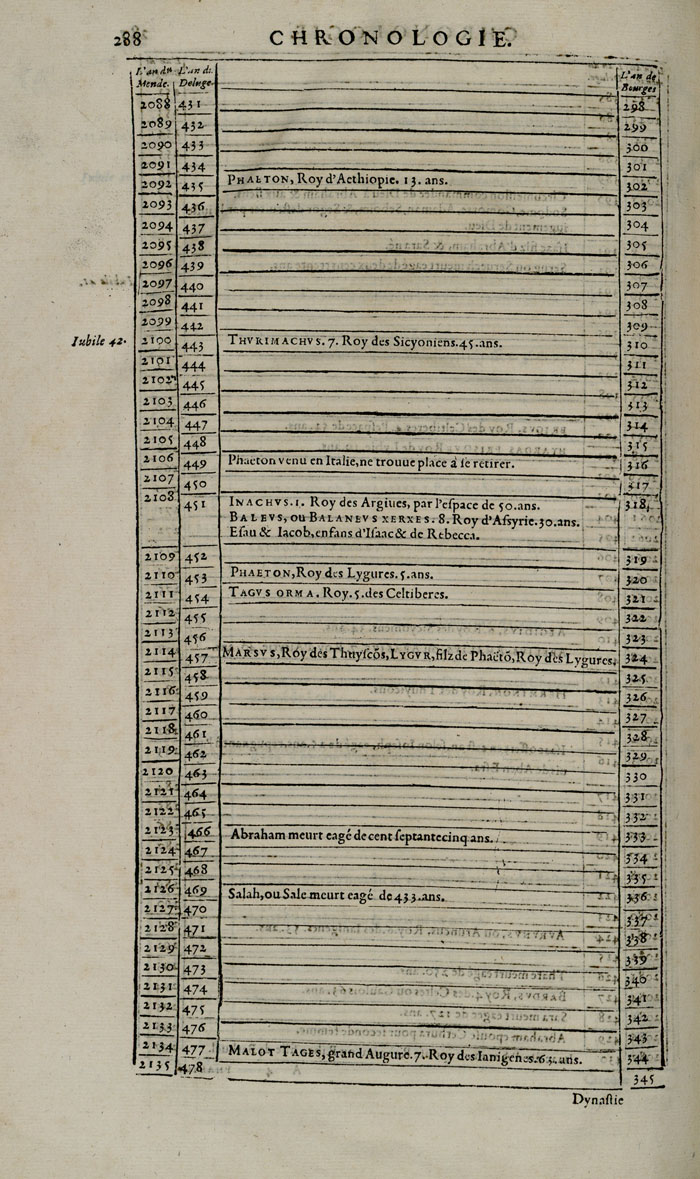 288 CHRONOLOGIE.
L'an du Monde. L'an du Deluge. L'an de Bourges
2088 431 298
2089 432 299
2090 433 300
2091 434 301
2092 435 PHAETON, Roy d'Aethiopie. 13. ans. 302
2093 436 303
2094 437 304
2095 438 305
2096 439 306
2097 440 307
2098 441 308
2099 442 309
Iubile 42. 2100 443 THVRIMACHVS. 7. Roy des Sicyoniens. 45. ans. 310
2101 444 311
2102 445 312
2103 446 313
2104 447 314
2105 448 315
2106 449 Phaeton venu en Italie, ne trouue place à se retirer. 316
2107 450 317
2108 451 INACHVS. 1. Roy des Argiues, par l'espace de 50. ans. 318
BALEVS, ou BALANEVS XERXES. 8. Roy d'Assyrie. 30. ans.
Esau & Iacob, enfans d'Isaac & de Rebecca.
2109 452 319
2110 453 PHAETON, Roy des Lygures. 5. ans. 320
2111 454 TAGVS ORMA. Roy. 5. des Celtiberes. 321
2112 455 322
2113 456 323
2114 457 MARSVS, Roy des Thuyscōs, LYGVR, filz de Phaëtō, Roy des Lygures. 324
2115 458 325
2116 459 326
2117 460 327
2118 461 328
2119 462 329
2120 463 330
2121 464 331
2122 465 332
2123 466 Abraham meurt eagé de cent septantecinq ans. 333
2124 467 334
2125 468 335
2126 469 Salah, ou Sale meurt eagé de 433. ans. 336
2127 470 337
2128 471 338
2129 472 339
2130 473 340
2131 474 341
2132 475 342
2133 476 343
2134 477 MALOT TAGES, grand Augure. 7. Roy des Ianigenes. 63. ans. 344
2135 478 345
Dynastie